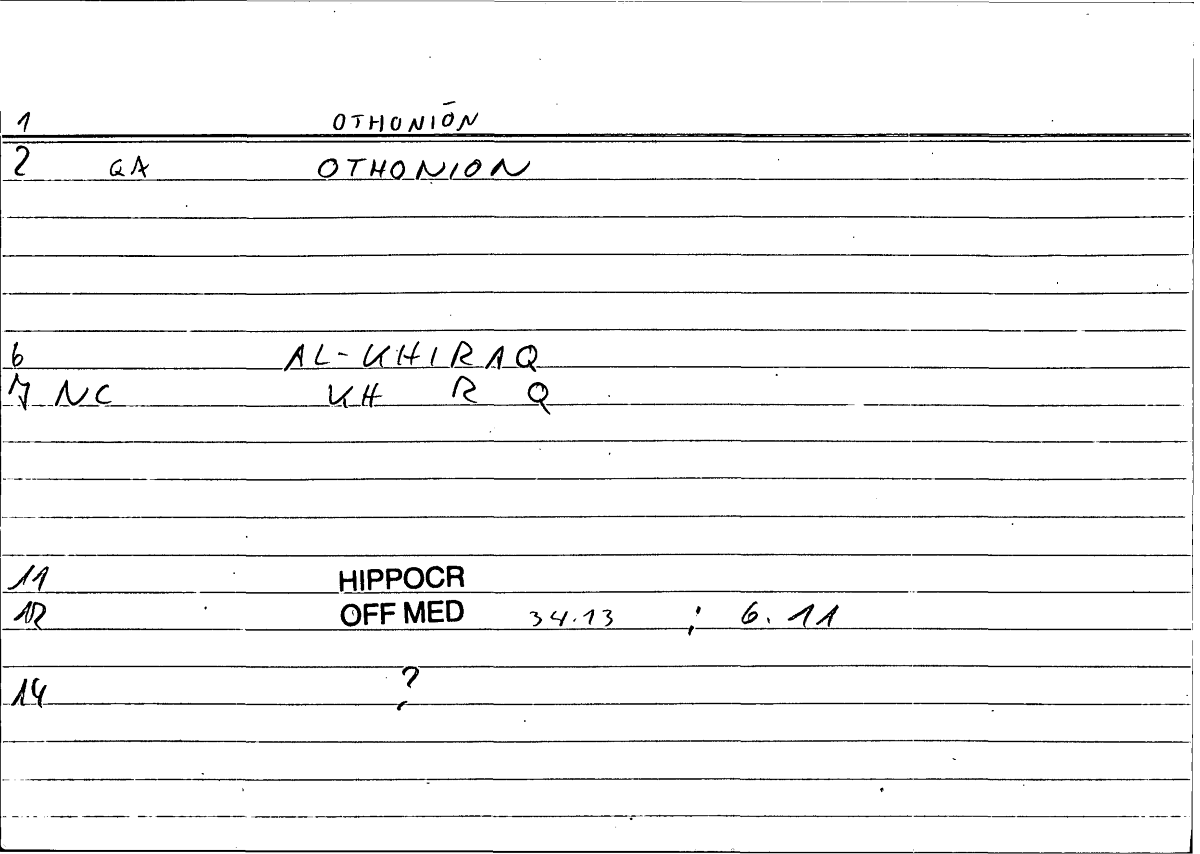 1 OTHONIŌN
2 GA OTHONION
6 AL-KHIRAQ
7 NC KH R Q
11 HIPPOCR
12 OFF MED 34.13 ; 6.11
14 ?